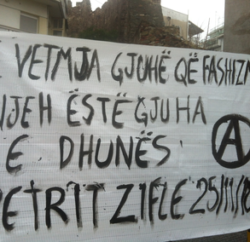 VETMJA GJUHË QË FASHIZM
IJEH ËSTË GJUHA
E DHUNËS. Ⓐ
PETRIT ZIFLE 25/11/